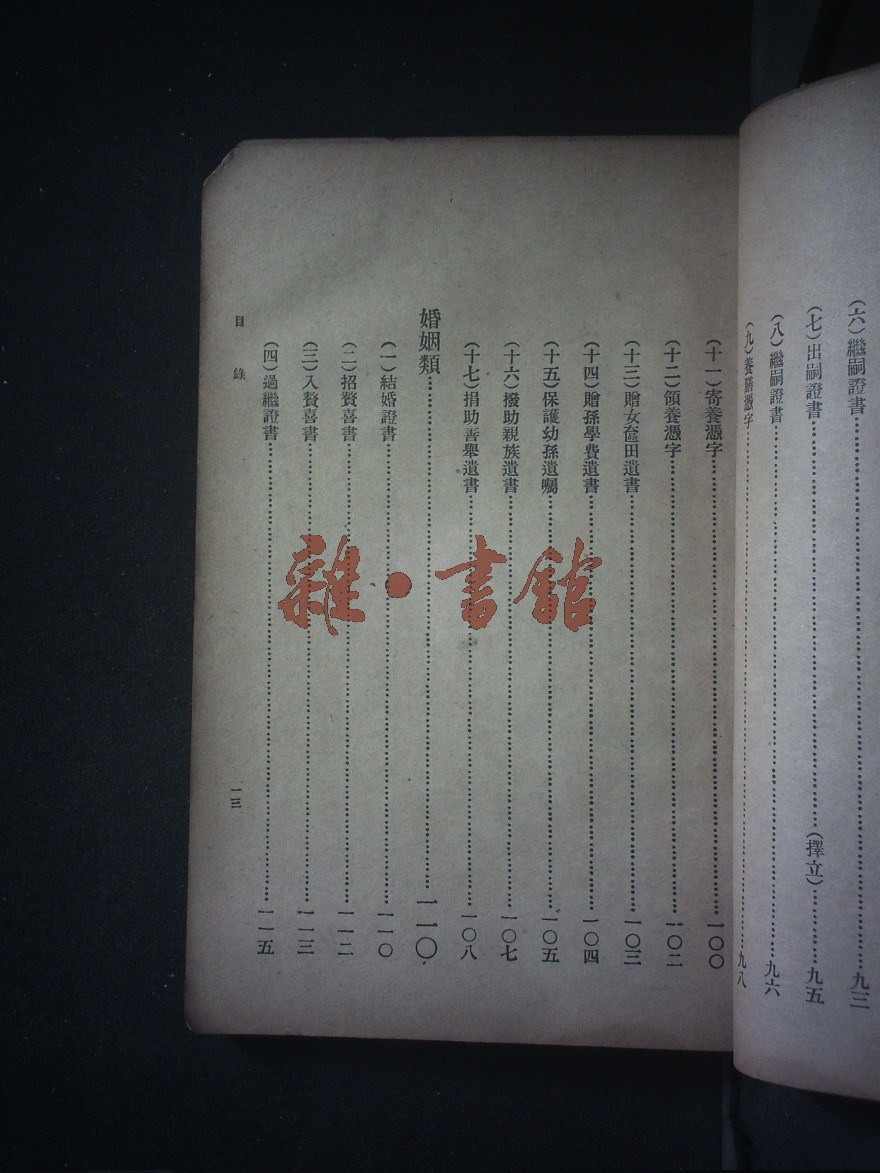 （六）繼嗣證書……九三
（七）出嗣證書……（擇立）……九五
（八）繼嗣證書……九六
（九）養贍憑字……九八
（十一）寄養憑字……一〇〇
（十二）領養憑字……一〇二
（十三）贈女奩田遺書……一〇三
（十四）贈孫學費遺書……一〇四
（十五）保護幼孫遺囑……一〇五
（十六）撥助親族遺書……一〇七
（十七）捐助善舉遺書……一〇八
婚姻類……一一〇
（一）結婚證書……一一〇
（二）招贅喜書……一一二
（三）入贅喜書……一一三
（四）過繼證書……一一五
目錄
一三
雜·書館